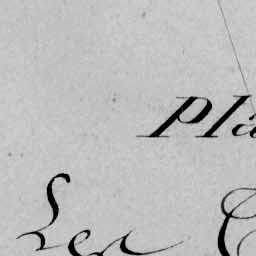 Pla
Les C